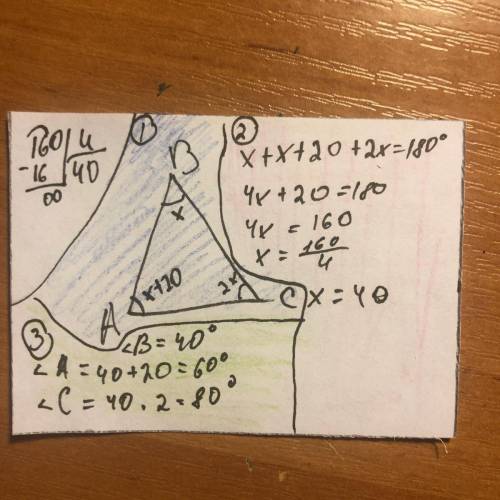 160 | 4
-16 | 40
00
①
B
x
x+20
2x
A
C
②
x+x+20+2x=180°
4x+20=180
4x=160
x=160/4
x=40
③
<B=40°
<A=40+20=60°
<C=40·2=80°